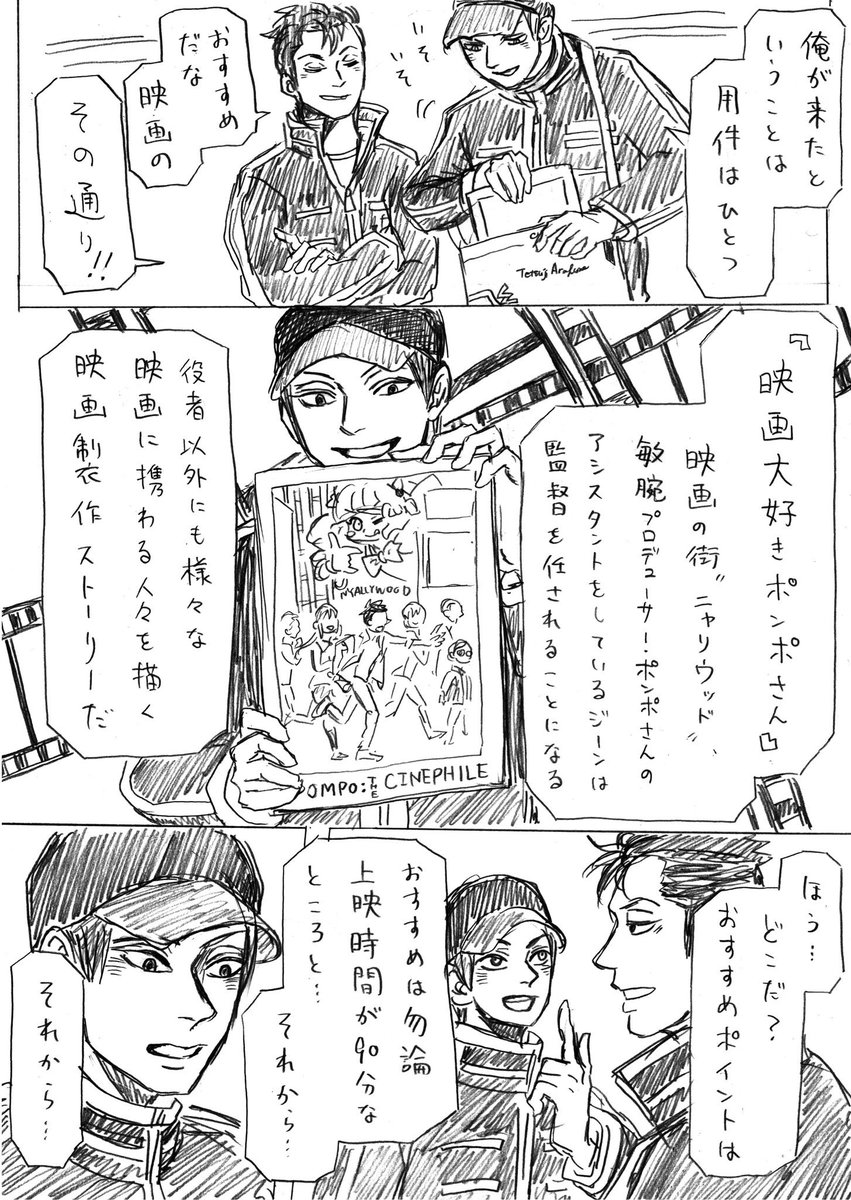 俺が来たと
いうことは
用件はひとつ
いそ
いそ
おすすめ
だな
映画の
その通り!!
『映画大好きポンポさん』
映画の街〝ニャリウッド〟
敏腕プロデューサー・ポンポさんの
アシスタントをしているジーンは
監督を任されることになる
NYALLYWOOD
POMPO: THE CINEPHILE
役者以外にも様々な
映画に携わる人々を描く
映画製作ストーリーだ
ほう…
どこだ?
おすすめポイントは
おすすめは勿論
上映時間が90分な
ところと…
それから…
それから…